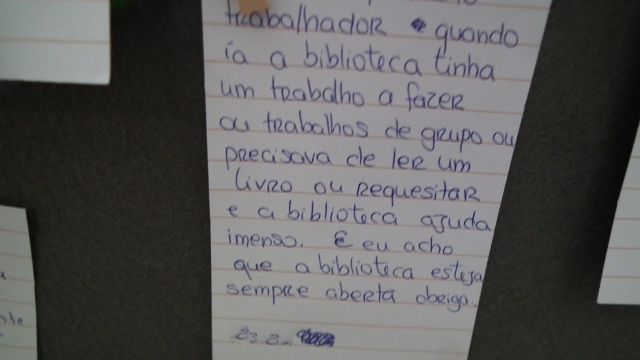 trabalhador quando
ia a biblioteca tinha
um trabalho a fazer
ou trabalhos de grupo ou
precisava de ler um
livro ou requesitar
e a biblioteca ajuda
imenso. E eu acho
que a biblioteca esteja
sempre aberta obrigo.